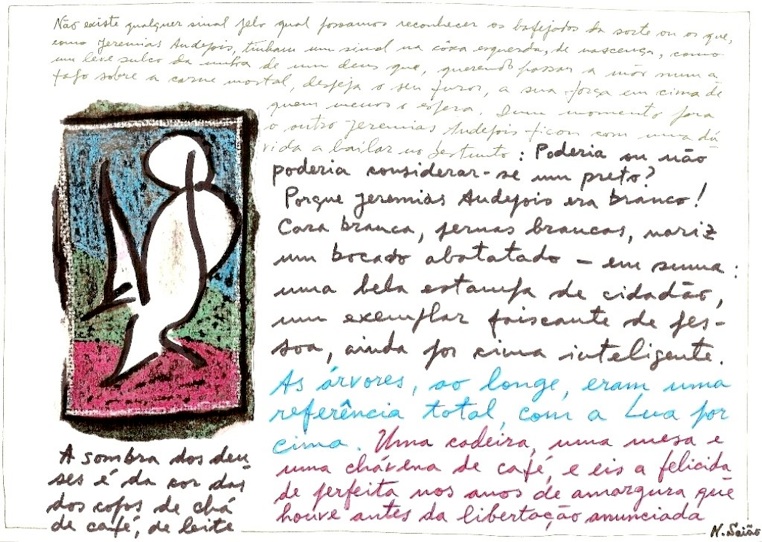 Não existe qualquer sinal pelo qual possamos reconhecer os bafejados da sorte ou os que,
como Jeremias Audepois, tinham um sinal na côxa esquerda, de nascença, como
um leve sulco da unha de um deus que, querendo passar a mão numa
fafo sobre a carne mortal, despeja o seu furor, a sua força em cima de
quem menos o espera. Dum momento para
o outro Jeremias Audepois ficou com uma dú
vida a bailar no bestunto: Poderia ou não
poderia considerar-se um preto?
Porque Jeremias Audepois era branco!
Cara branca, pernas brancas, nariz
um bocado abatatado – em suma:
uma bela estampa de cidadão,
um exemplar faiscante de pes-
soa, ainda por cima inteligente.
As árvores, ao longe, eram uma
referência total, com a Lua por
cima. Uma cadeira, uma mesa e
uma chávena de café, e eis a felicida
de perfeita nos anos de amargura que
houve antes da libertação anunciada
A sombra dos deu
ses é da cor das
dos copos de chá
de café, de leite
N. Saião